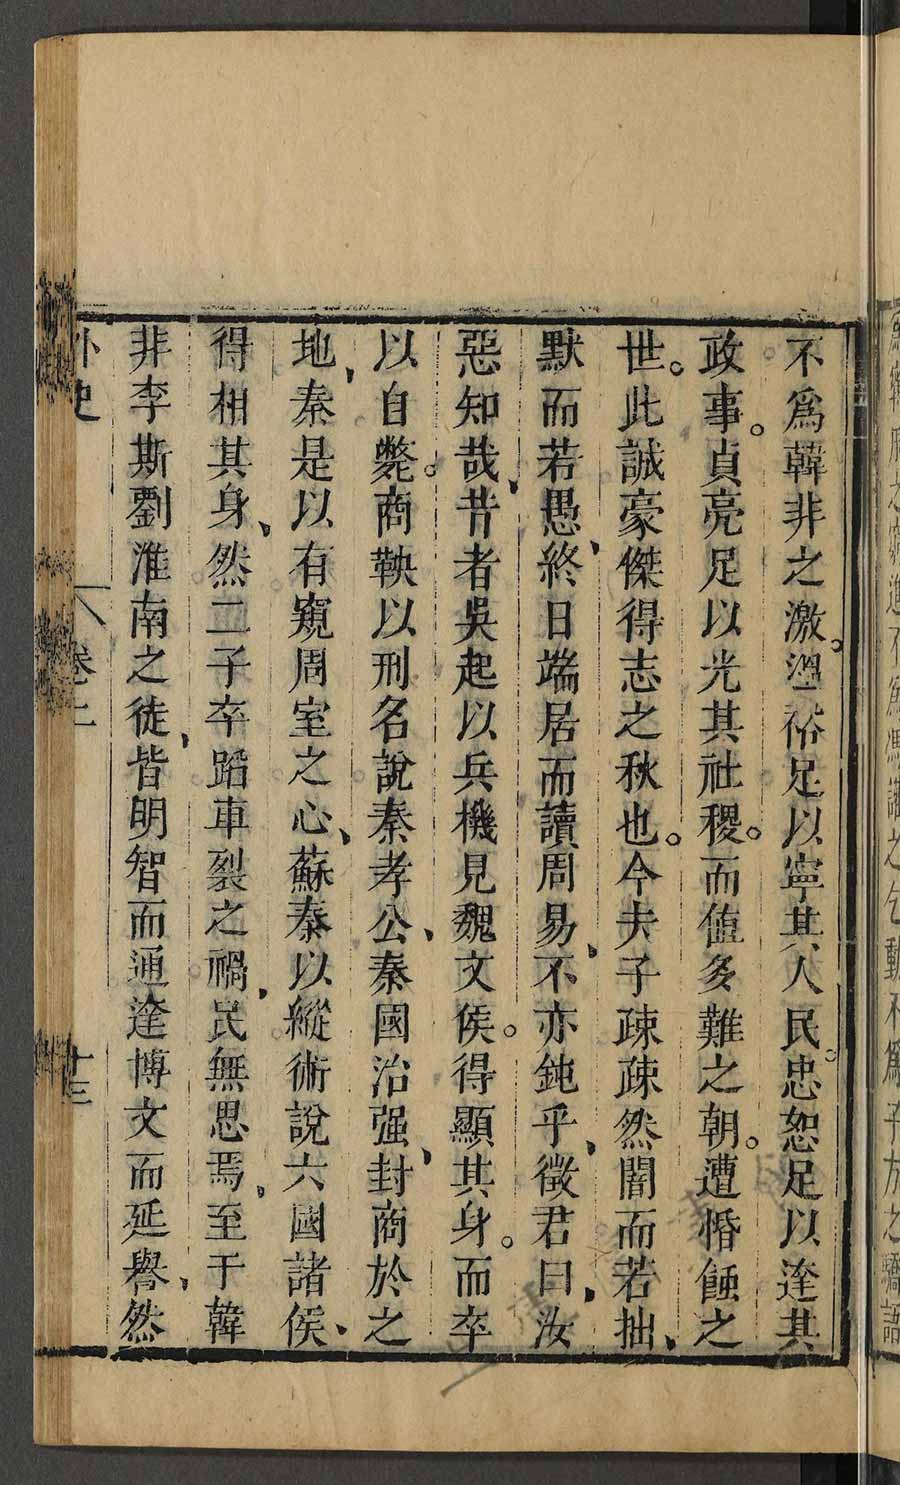 不爲韓非之激。溫裕足以寧其人民。忠恕足以達其
政事。貞亮足以光其社稷。而値多難之朝。遭惛蝕之
世。此誠豪傑得志之秋也。今夫子疎疎然闇而若拙、
默而若愚、終日端居而讀周易、不亦鈍乎、徵君曰、汝
惡知哉、昔者吳起以兵機見魏文侯。得顯其身。而卒
以自斃。商鞅以刑名說秦孝公、秦國治强、封商於之
地、秦是以有窺周室之心、蘇秦以縱術說六國諸侯、
得相其身、然二子卒蹈車裂之禍、民無思焉、至于韓
非李斯劉淮南之徒、皆明智而通達博文而延譽、然
外史 卷上 十三